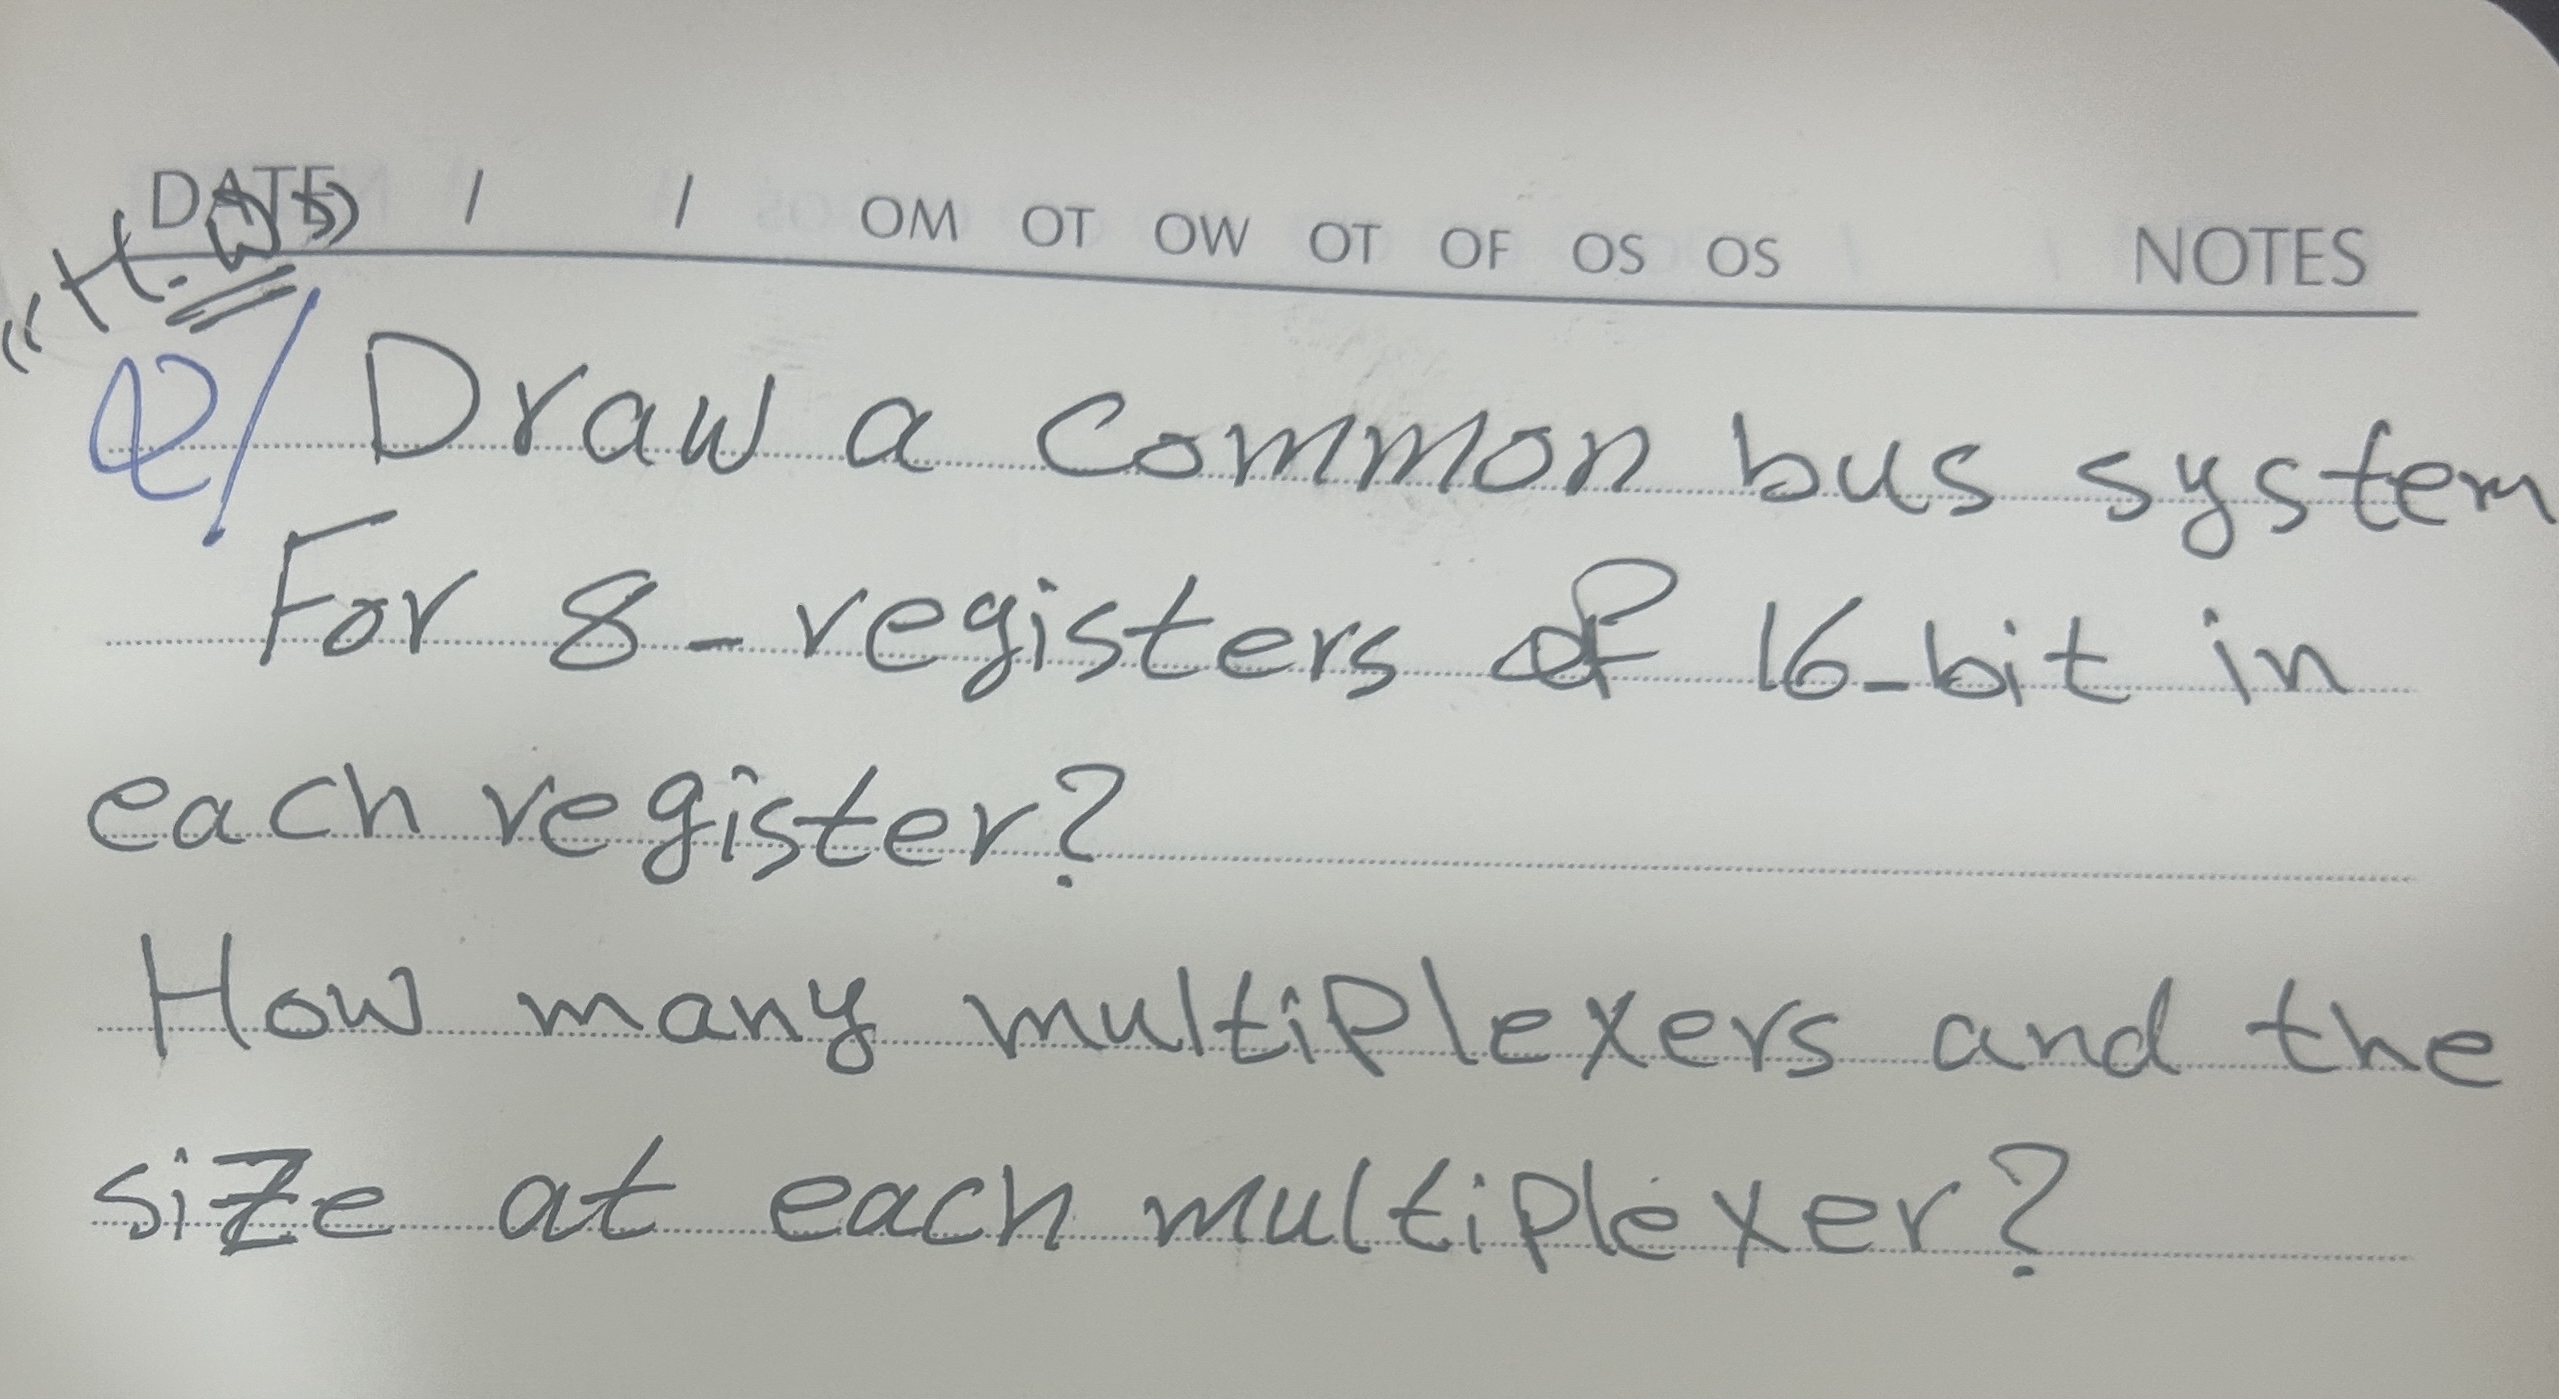 DATE / / OM OT OW OT OF OS OS NOTES
"H.W"
Q/ Draw a common bus system
For 8-registers of 16-bit in
each register?
How many multiplexers and the
size at each multiplexer?